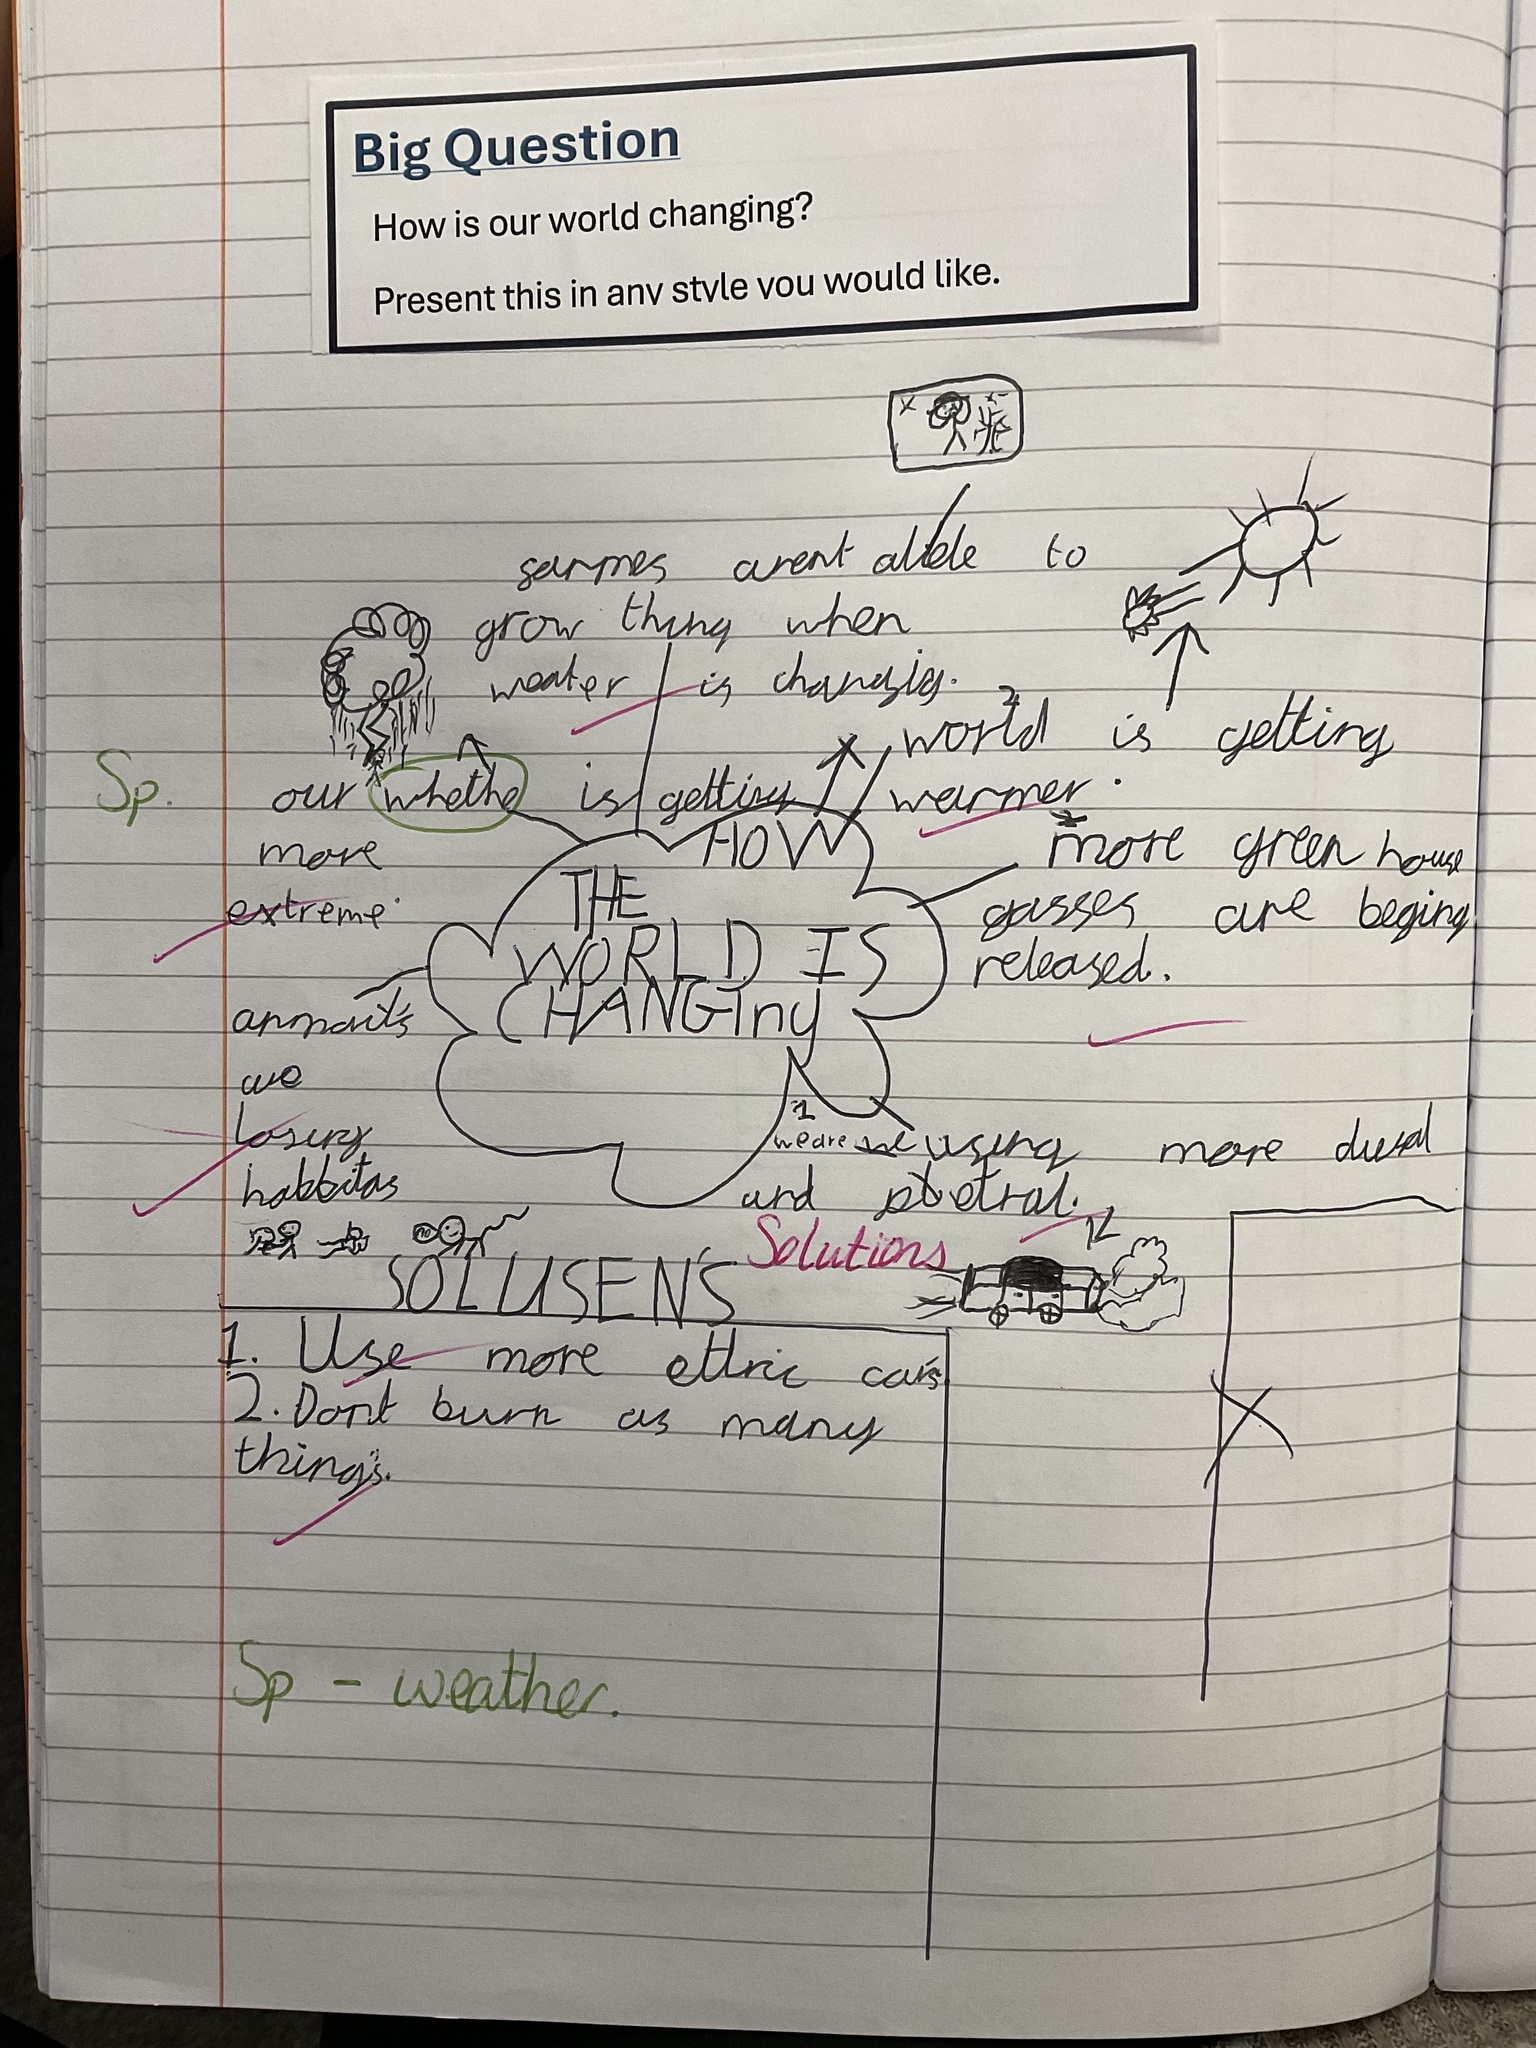 Big Question
How is our world changing?
Present this in any style you would like.
sarmes arent able to
grow thing when
weater is changig.
Sp.
our whethe is getting
more
extreme.
2
world is getting
warmer.
more green house
gasses are beging
released.
HOW
THE
WORLD IS
CHANGIng
we
losing
habbitas
1
we are using more
and petral.
SOLUSEN'S
Solutions
1. Use more car's
2. Dont burn as many
things.
Sp - weather.